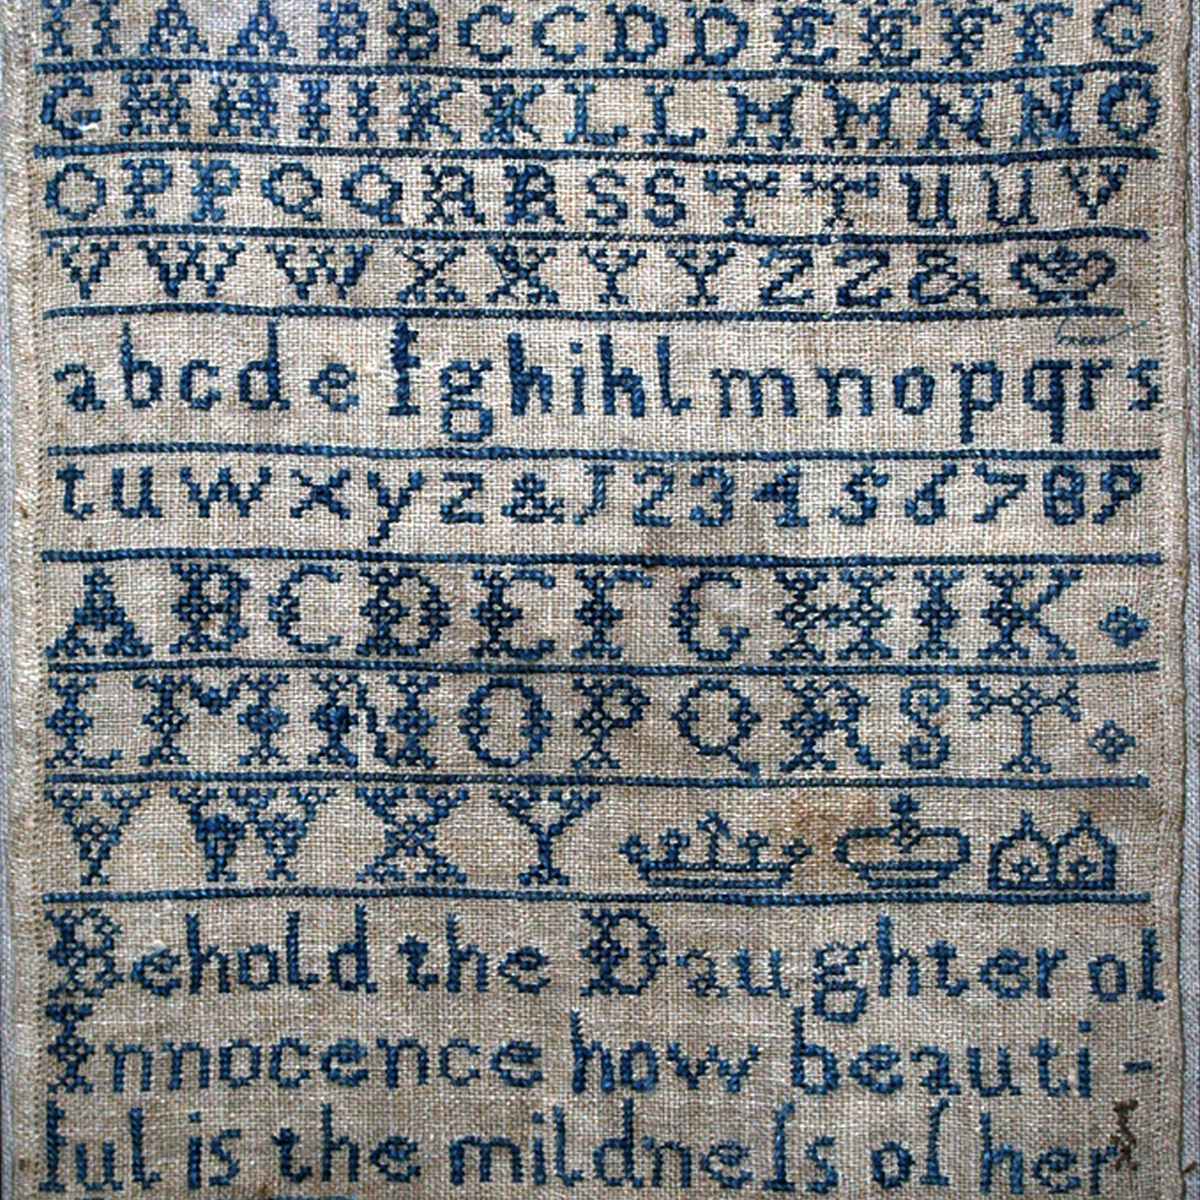 A A B B C C D D E E F F G
G H H I I K K L L M M N N O
O P P Q Q R R S S T T U U V
V W W X X Y Y Z Z &
a b c d e f g h i k l m n o p q r s
t u w x y z & 1 2 3 4 5 6 7 8 9
A B C D E F G H I K
L M N O P Q R S T
V W X Y
Behold the Daughter of
Innocence how beauti -
ful is the mildneſs of her